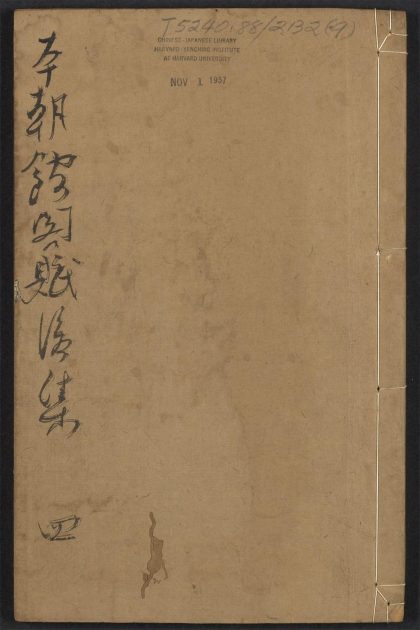 T5240.88/2132(4)
CHINESE-JAPANESE LIBRARY
HARVARD-YENCHING INSTITUTE
AT HARVARD UNIVERSITY
NOV 1 1937
本朝館閣賦後集
四